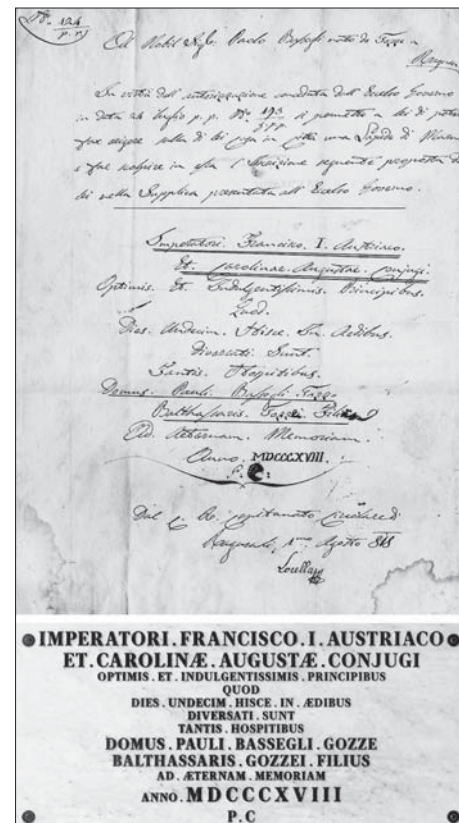 Nº. 124
p. p.
Al Nobil Sigr. Paolo Bassegli nato de Gozze
Ragusa
In virtù dell'autorizzazione emanata dall'Eccelso Governo
in data 24 Luglio p. p. Nº. si permette a lei di poter
far erigere sulla di lei casa in Città una Lapide di Marmo
e far scolpire in essa l'Iscrizione seguente proposta da
lei nella Supplica presentata all'Eccelso Governo.
Imperatori. Francisco. I. Austriaco.
Et. Carolinae. Augustae. Conjugi.
Optimis. Et. Indulgentissimis. Principibus.
Quod.
Dies. Undecim. Hisce. In. Aedibus.
Diversati. Sunt.
Tantis. Hospitibus.
Domus. Pauli. Bassegli. Gozze
Balthassaris. Gozzei. Filius
Ad. Aeternam. Memoriam.
Anno. MDCCCXVIII.
P. C.
Dal C. R. Capitanato Circolare di
Ragusa li Agosto 818
IMPERATORI.FRANCISCO.I.AUSTRIACO
ET.CAROLINÆ.AUGUSTÆ.CONJUGI
OPTIMIS.ET.INDULGENTISSIMIS.PRINCIPIBUS
QUOD
DIES.UNDECIM.HISCE.IN.ÆDIBUS
DIVERSATI.SUNT
TANTIS.HOSPITIBUS
DOMUS.PAULI.BASSEGLI.GOZZE
BALTHASSARIS.GOZZEI.FILIUS
AD.ÆTERNAM.MEMORIAM
ANNO.MDCCCXVIII
P.C